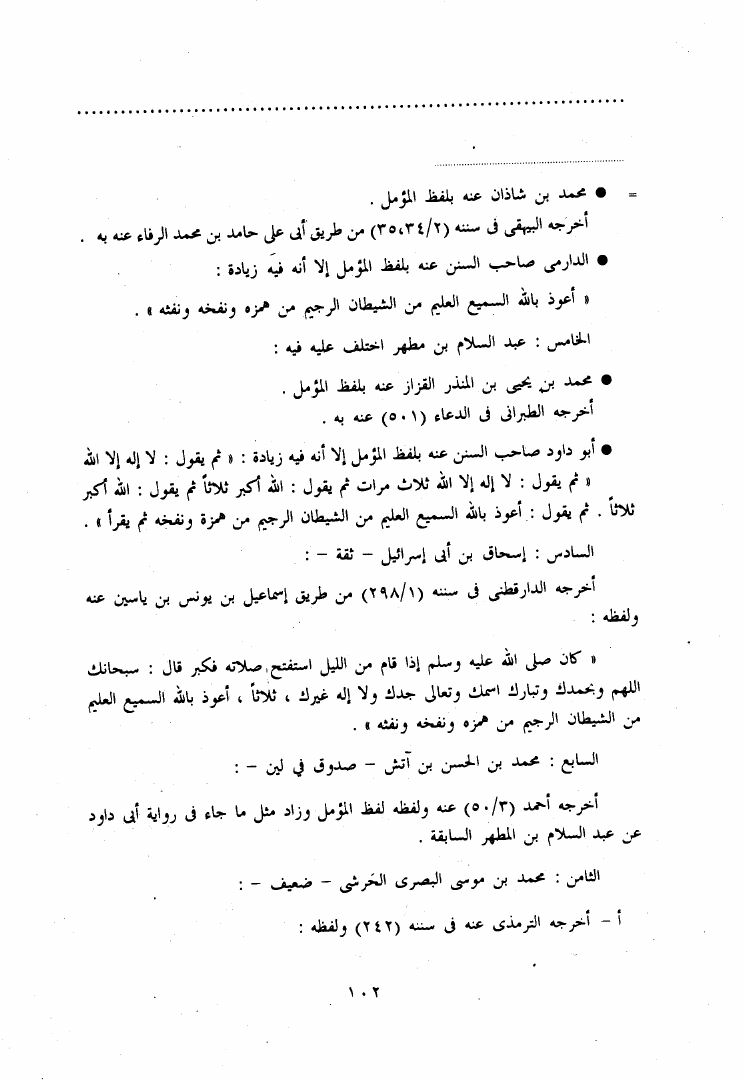 = ● محمد بن شاذان عنه بلفظ المؤمل .
أخرجه البيهقى فى سننه (٣٥،٣٤/٢) من طريق أبى على حامد بن محمد الرفاء عنه به .
● الدارمى صاحب السنن عنه بلفظ المؤمل إلا أنه فيه زيادة :
« أعوذ بالله السميع العليم من الشيطان الرجيم من همزه ونفخه ونفثه » .
الخامس : عبد السلام بن مطهر اختلف عليه فيه :
● محمد بن يحيى بن المنذر القزاز عنه بلفظ المؤمل .
أخرجه الطبرانى فى الدعاء (٥٠١) عنه به .
● أبو داود صاحب السنن عنه بلفظ المؤمل إلا أنه فيه زيادة : « ثم يقول : لا إله إلا الله
« ثم يقول : لا إله إلا الله ثلاث مرات ثم يقول : الله أكبر ثلاثاً ثم يقول : الله أكبر
ثلاثاً . ثم يقول : أعوذ بالله السميع العليم من الشيطان الرجيم من همزة ونفخه ثم يقرأ » .
السادس : إسحاق بن أبى إسرائيل – ثقة – :
أخرجه الدارقطنى فى سننه (٢٩٨/١) من طريق إسماعيل بن يونس بن ياسين عنه
ولفظه :
« كان صلى الله عليه وسلم إذا قام من الليل استفتح صلاته فكبر قال : سبحانك
اللهم وبحمدك وتبارك اسمك وتعالى جدك ولا إله غيرك ، ثلاثاً ، أعوذ بالله السميع العليم
من الشيطان الرجيم من همزه ونفخه ونفثه » .
السابع : محمد بن الحسن بن آتش – صدوق في لين – :
أخرجه أحمد (٥٠/٣) عنه ولفظه لفظ المؤمل وزاد مثل ما جاء فى رواية أبى داود
عن عبد السلام بن المطهر السابقة .
الثامن : محمد بن موسى البصرى الحَرشى – ضعيف – :
أ – أخرجه الترمذى عنه فى سننه (٢٤٢) ولفظه :
١٠٢